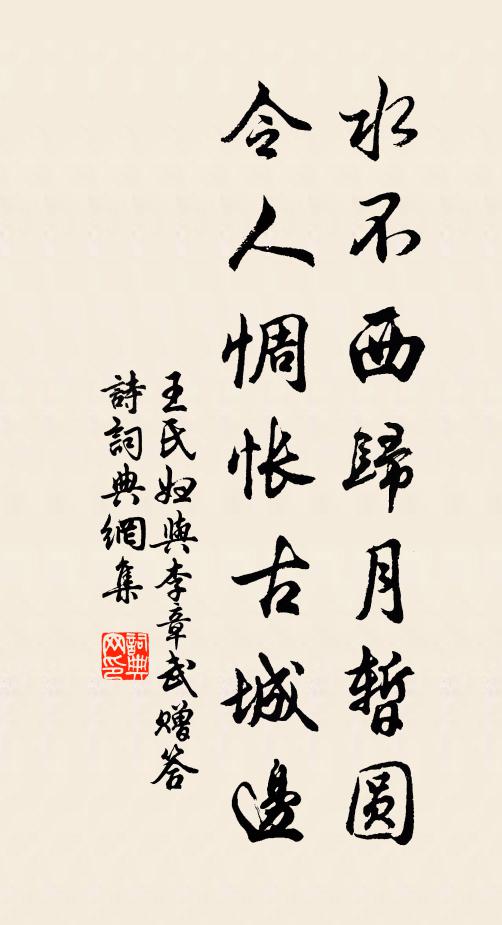 水不西歸月暫圆
令人惆怅古城邊
王氏妇與李章武赠答
詩詞典網集
詞典网印